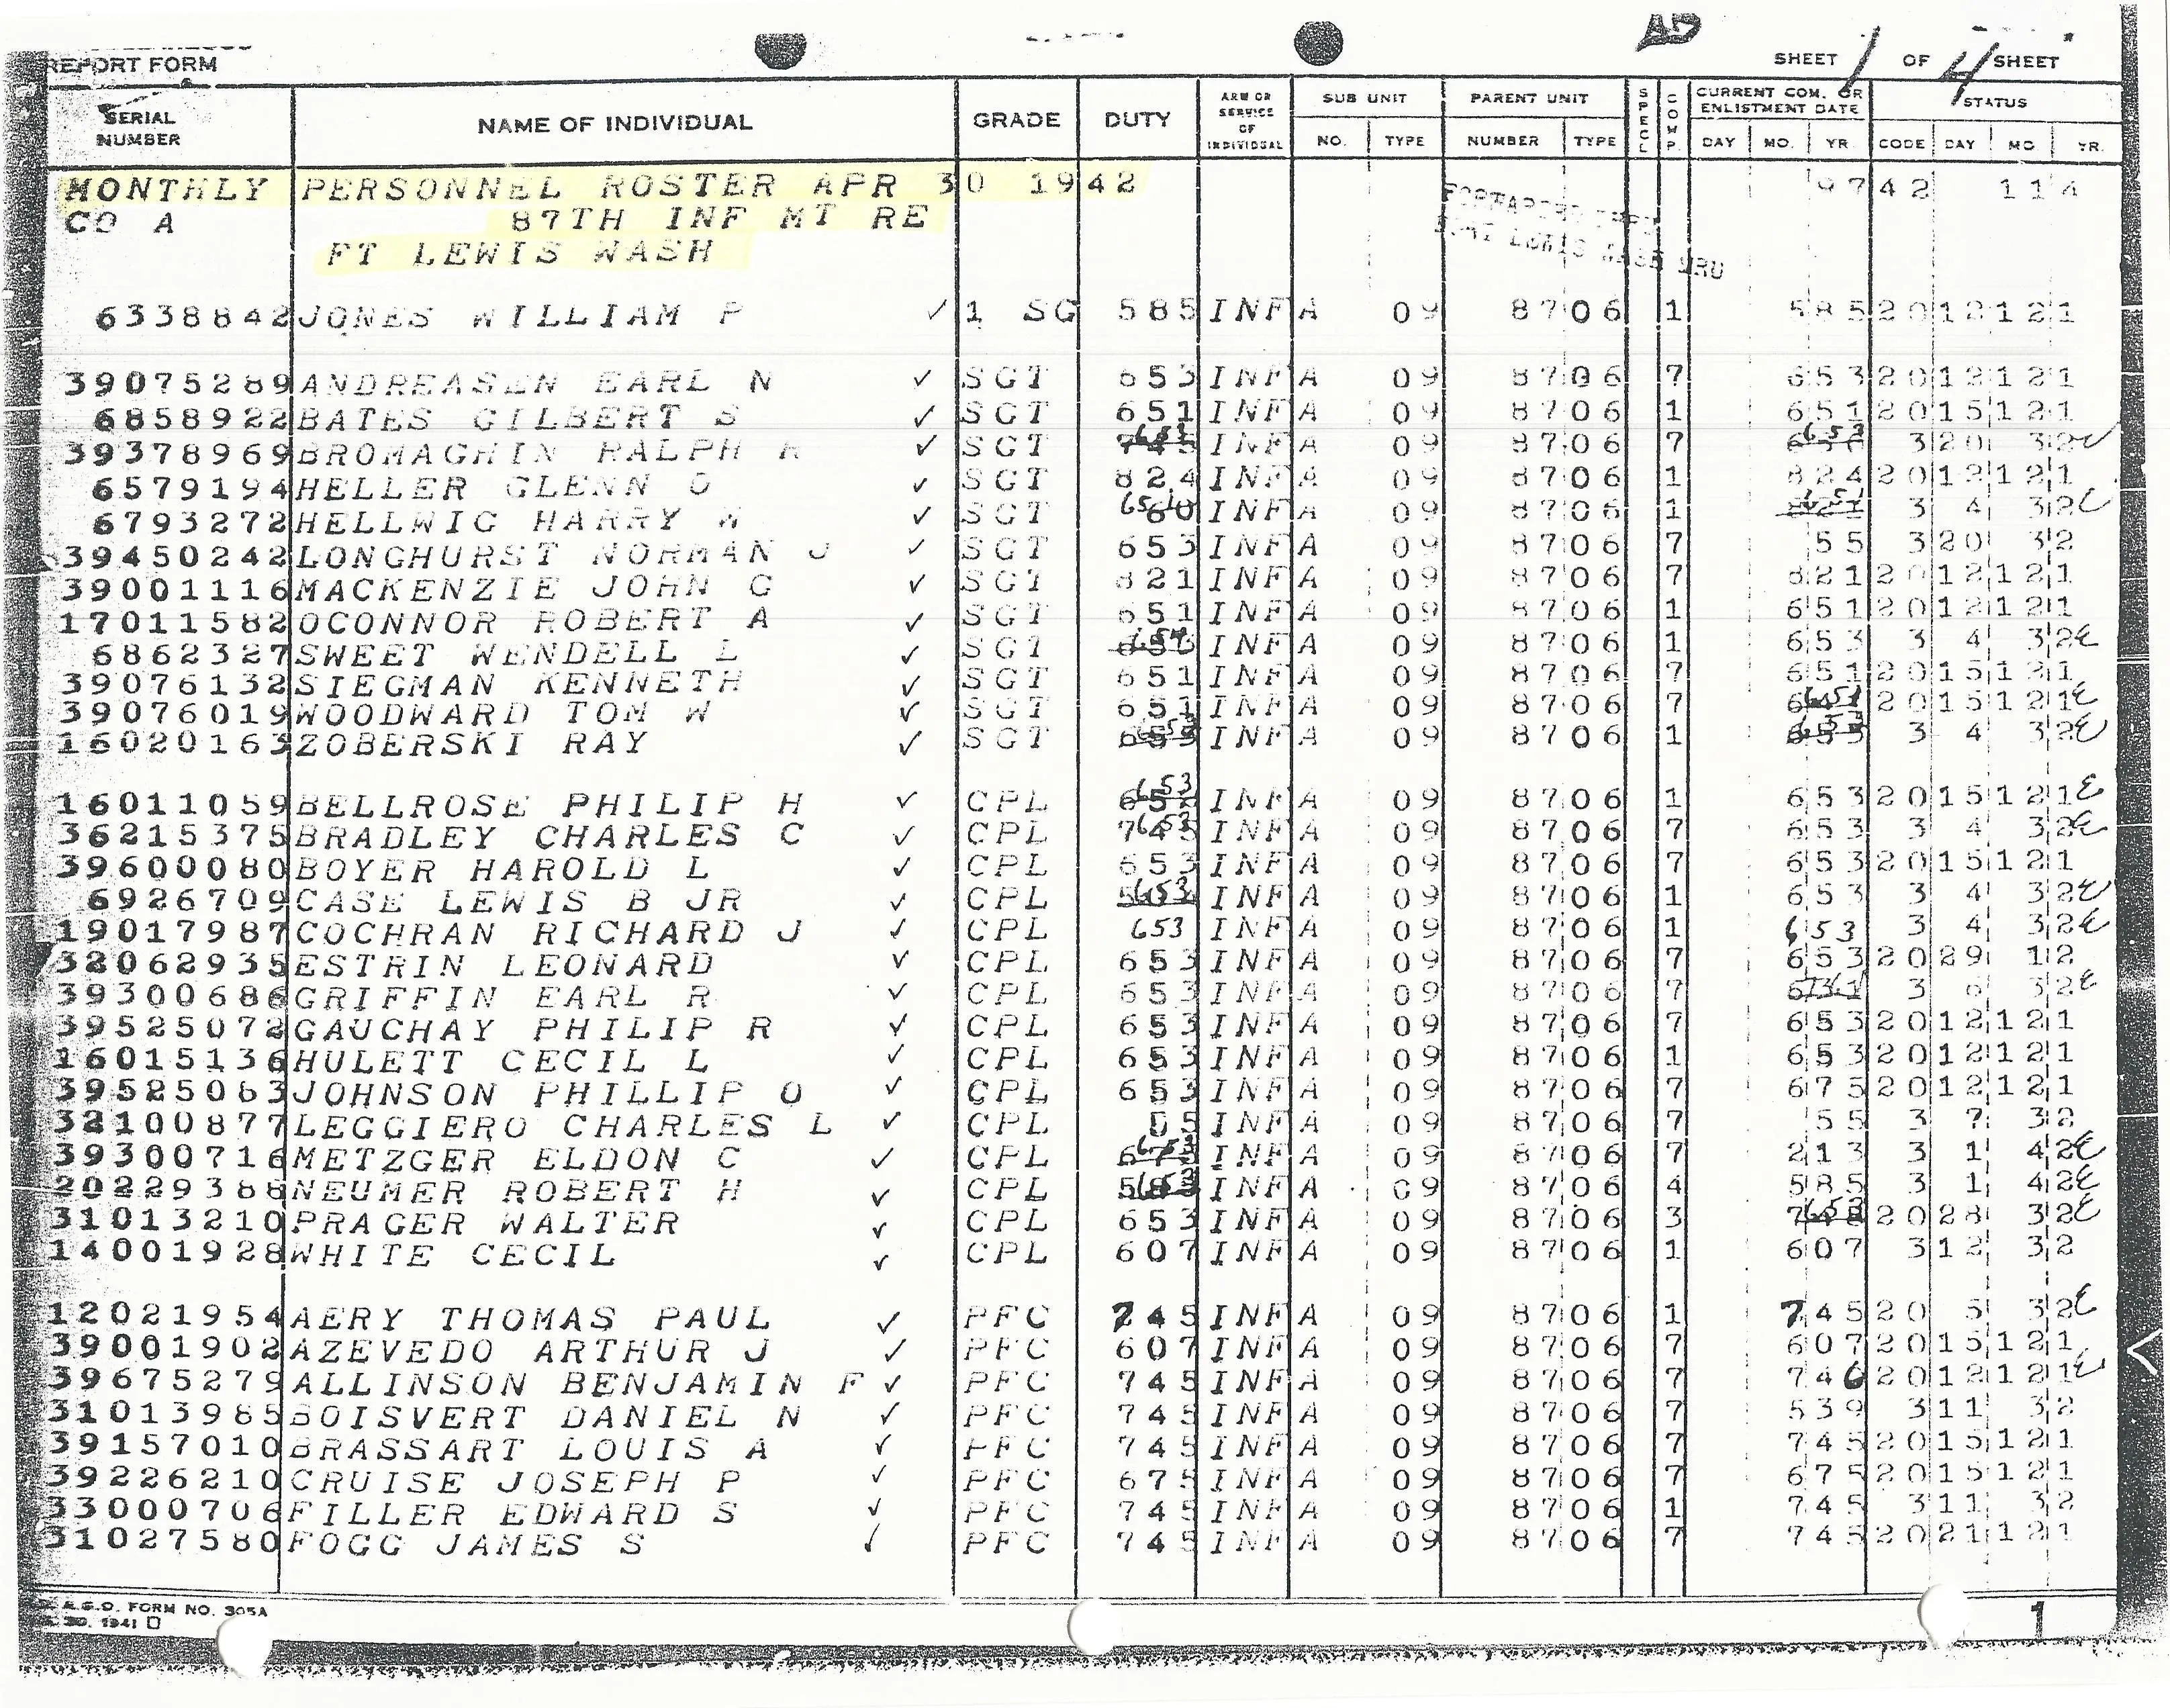 REPORT FORM
SHEET 1 OF 4 SHEET
SERIAL NUMBER NAME OF INDIVIDUAL GRADE DUTY ARM OR SERVICE OF INDIVIDUAL SUB UNIT NO. TYPE PARENT UNIT NUMBER TYPE SPECL COMP. CURRENT COM. OR ENLISTMENT DATE DAY MO. YR. STATUS CODE DAY MO YR.
MONTHLY PERSONNEL ROSTER APR 30 1942 9742 114
CO A 87TH INF MT RE
FT LEWIS WASH
6338842 JONES WILLIAM P ✓ 1 SG 585 INF A 09 8706 1 585 2012121
39075289 ANDREASEN EARL N ✓ SGT 653 INF A 09 8706 7 653 2012121
6858922 BATES GILBERT S ✓ SGT 651 INF A 09 8706 1 651 2015121
39378969 BROMAGHIN RALPH ✓ SGT INF A 09 8706 7 653 320 32
6579194 HELLER GLENN ✓ SGT 824 INF A 09 8706 1 824 2012121
6793272 HELLWIG HARRY W ✓ SGT INF A 09 8706 1 3 4 32
39450242 LONGHURST NORMAN J ✓ SGT 653 INF A 09 8706 7 55 320 32
39001116 MACKENZIE JOHN G ✓ SGT 821 INF A 09 8706 7 821 2012121
17011582 OCONNOR ROBERT A ✓ SGT 651 INF A 09 8706 1 651 2012121
6862327 SWEET WENDELL L ✓ SGT INF A 09 8706 1 653 3 4 32
39076132 SIEGMAN KENNETH ✓ SGT 651 INF A 09 8706 7 651 2015121
39076019 WOODWARD TOM W ✓ SGT 651 INF A 09 8706 7 651 2015121
16020163 ZOBERSKI RAY ✓ SGT 653 INF A 09 8706 1 653 3 4 32
16011059 BELLROSE PHILIP H ✓ CPL 653 INF A 09 8706 1 653 2015121
36215375 BRADLEY CHARLES C ✓ CPL 745 653 INF A 09 8706 7 653 3 4 32
39600080 BOYER HAROLD L ✓ CPL 653 INF A 09 8706 7 653 2015121
6926709 CASE LEWIS B JR ✓ CPL 653 INF A 09 8706 1 653 3 4 32
19017987 COCHRAN RICHARD J ✓ CPL 653 INF A 09 8706 1 653 3 4 32
32062935 ESTRIN LEONARD ✓ CPL 653 INF A 09 8706 7 653 2029 12
39300686 GRIFFIN EARL R ✓ CPL 653 INF A 09 8706 7 3 6 32
39525072 GAUCHAY PHILIP R ✓ CPL 653 INF A 09 8706 7 653 2012121
16015136 HULETT CECIL L ✓ CPL 653 INF A 09 8706 1 653 2012121
39525063 JOHNSON PHILLIP O ✓ CPL 653 INF A 09 8706 7 675 2012121
32100877 LEGGIERO CHARLES L ✓ CPL 55 INF A 09 8706 7 55 3 7 32
39300716 METZGER ELDON C ✓ CPL 653 INF A 09 8706 7 213 3 1 42
20229388 NEUMER ROBERT H ✓ CPL 653 INF A 09 8706 4 585 3 1 42
31013210 PRAGER WALTER ✓ CPL 653 INF A 09 8706 3 653 2028 32
14001928 WHITE CECIL ✓ CPL 607 INF A 09 8706 1 607 312 32
12021954 AERY THOMAS PAUL ✓ PFC 745 INF A 09 8706 1 745 20 5 32
39001902 AZEVEDO ARTHUR J ✓ PFC 607 INF A 09 8706 7 607 2015121
39675279 ALLINSON BENJAMIN F ✓ PFC 745 INF A 09 8706 7 746 2012121
31013985 BOISVERT DANIEL N ✓ PFC 745 INF A 09 8706 7 539 311 32
39157010 BRASSART LOUIS A ✓ PFC 745 INF A 09 8706 7 745 2015121
39226210 CRUISE JOSEPH P ✓ PFC 675 INF A 09 8706 7 675 2015121
33000706 FILLER EDWARD S ✓ PFC 745 INF A 09 8706 1 745 311 32
31027580 FOGG JAMES S ✓ PFC 745 INF A 09 8706 7 745 2021121
A.G.O. FORM NO. 305A
1941
1